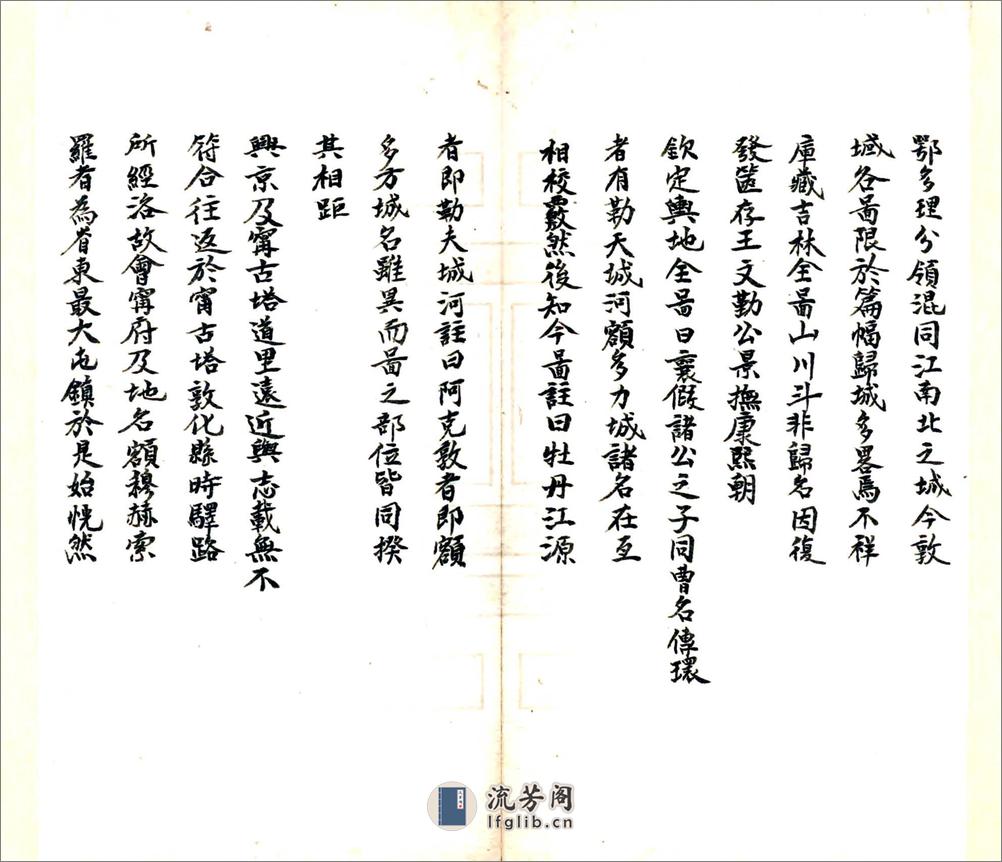 鄂多理分領混同江南北之城今敦
域各啚限於篇幅歸城多畧焉不祥
庫藏吉林全啚山川斗非歸名因復
發箧存王文勤公景撫康熙朝
欽定輿地全啚曰襄假諸公之子同曹名傳環
者有勒天城河額多力城諸名在互
相校覈然後知今啚註曰牡丹江源
者即勒夫城河註曰阿克敦者即額
多方城名雖異而啚之部位皆同揆
其相距
興京及甯古塔道里遠近與志載無不
符合往返於甯古塔敦化縣時驛路
所經洛故會甯府及地名額穆赫索
羅者為省東最大屯鎮於是始恍然
流芳阁
lfglib.cn